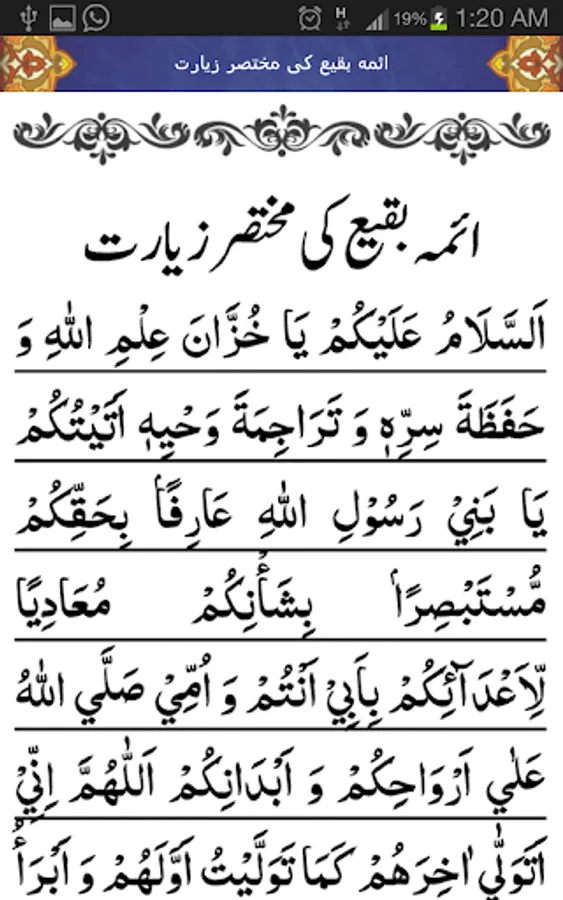 H 19% 1:20 AM
ائمه بقیع کی مختصر زیارت
ائمہ بقیع کی مختصر زیارت
اَلسَّلَامُ عَلَيْكُمْ يَا خُزَّانَ عِلْمِ اللهِ وَ
حَفَظَةَ سِرِّهٖ وَ تَرَاجِمَةَ وَحْيِهٖ اَتَيْتُكُمْ
يَا بَنِيْ رَسُوْلِ اللهِ عَارِفًا بِحَقِّكُمْ
مُّسْتَبْصِرًا بِشَأْنِكُمْ مُعَادِيًا
لِّاَعْدَآئِكُمْ بِاَبِيْ اَنْتُمْ وَ اُمِّيْ صَلَّي اللهُ
عَلٰي اَرْوَاحِكُمْ وَ اَبْدَانِكُمْ اَللّٰهُمَّ اِنِّيْ
اَتَوَلّٰي اٰخِرَهُمْ كَمَا تَوَلَّيْتُ اَوَّلَهُمْ وَ اَبْرَأُ